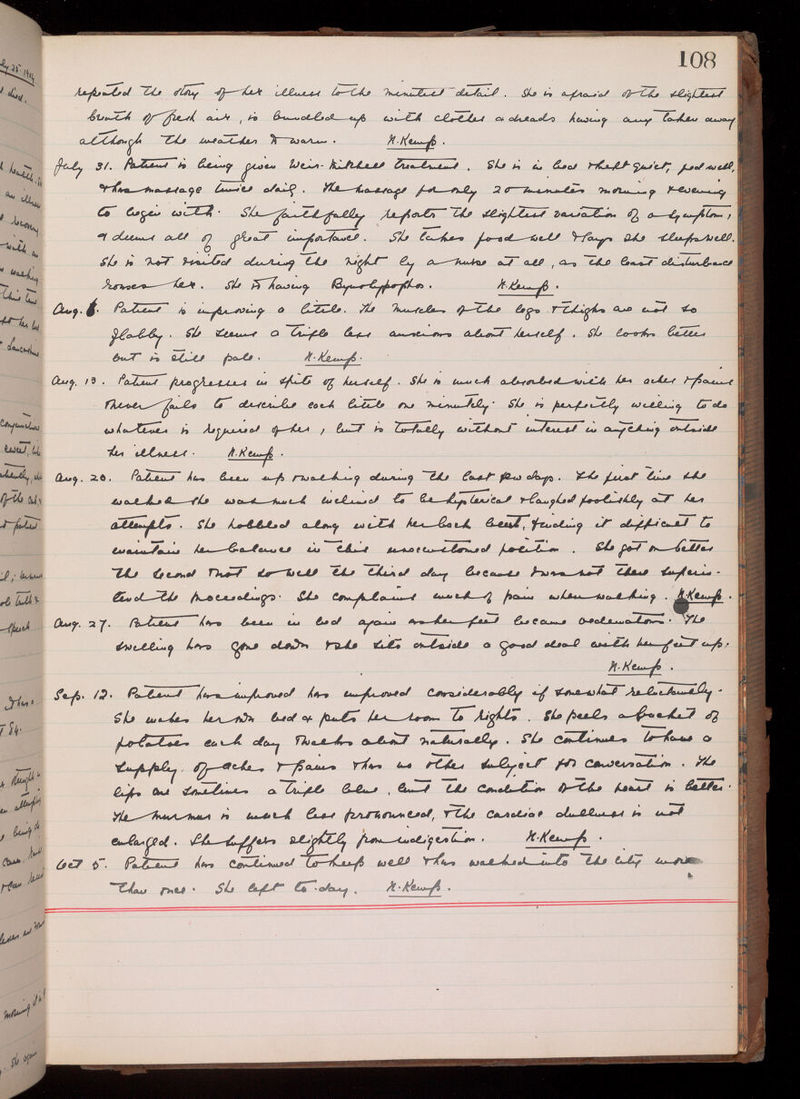 108
repeated the story of her illness to the minutest detail. She is afraid of the slightest
breath of fresh air, is bundled up with clothes & dreads having any taken away
although the weather is warm. N. Kemp.
July 31. Patient is being given Weir-Mitchell treatment. She is in bed & kept quiet, fed well,
& has massage twice daily. The massage for only 20 minutes morning & evening
to begin with. She faithfully reports the slightest variation of a symptom,
& deems all of great importance. She takes food well & says she sleeps well.
She is not visited during the night by a nurse at all, as the least disturbance
rouses her. She is having Bynohypophos. N. Kemp.
Aug. 6. Patient is improving a little. The muscles of the legs & thighs are not so
flabby. She seems a trifle less anxious about herself. She looks better
but is still pale. N. Kemp.
Aug. 13. Patient progresses in spite of herself. She is much absorbed with her aches & pains
& never fails to describe each little one minutely. She is perfectly willing to do
whatever is required of her, but is totally without interest in anything outside
her illness. N. Kemp.
Aug. 20. Patient has been up & walking during the last few days. The first time she
walked she was much inclined to be hysterical & laughed foolishly at her
attempts. She hobbled along with her back bent, finding it difficult to
maintain her balance in this unaccustomed position. She got on better
the second & not so well the third day because I was not there superin-
tend the proceedings. She complains much of pain when walking. N. Kemp.
Aug. 27. Patient has been in bed again as her feet became oedematous. The
swelling has gone down & she sits outside a good deal with her feet up.
N. Kemp.
Sep. 12. Patient has improved has improved considerably if somewhat reluctantly.
She makes her own bed & puts her room to rights. She peels a bucket of
potatoes each day & walks about naturally. She continues to have a
supply of aches & pains & has no other subject for conversation. The
lips are sometimes a trifle blue, but the condition of the heart is better.
The murmur is much less pronounced, & the cardiac dullness is not
enlarged. She suffers slightly from indigestion. N. Kemp.
Oct 5. Patient has continued to keep well & has walked into the city more
than once. She left to-day. N. Kemp.